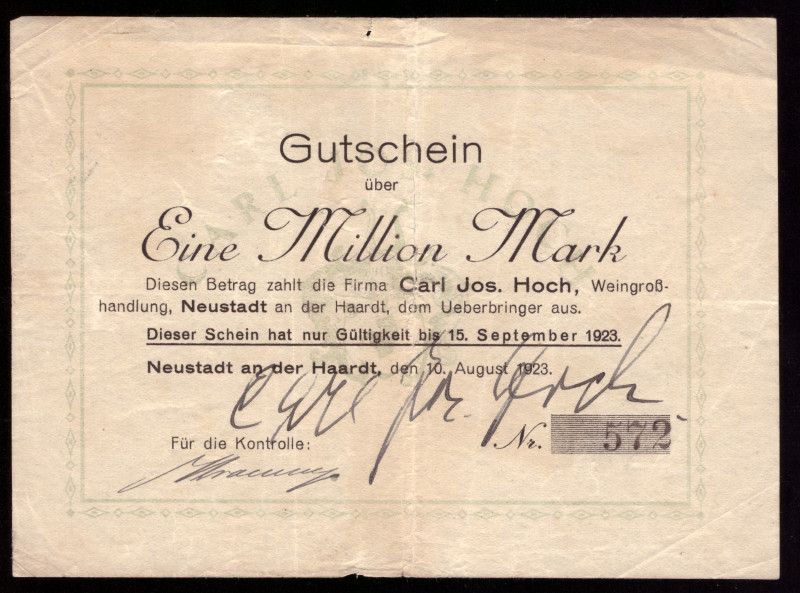 CARL JOS. HOCH
Gutschein
über
Eine Million Mark
Diesen Betrag zahlt die Firma Carl Jos. Hoch, Weingroß-
handlung, Neustadt an der Haardt, dem Ueberbringer aus.
Dieser Schein hat nur Gültigkeit bis 15. September 1923.
Neustadt an der Haardt, den 10. August 1923.
Carl Jos. Hoch
Für die Kontrolle:
Nr. 572